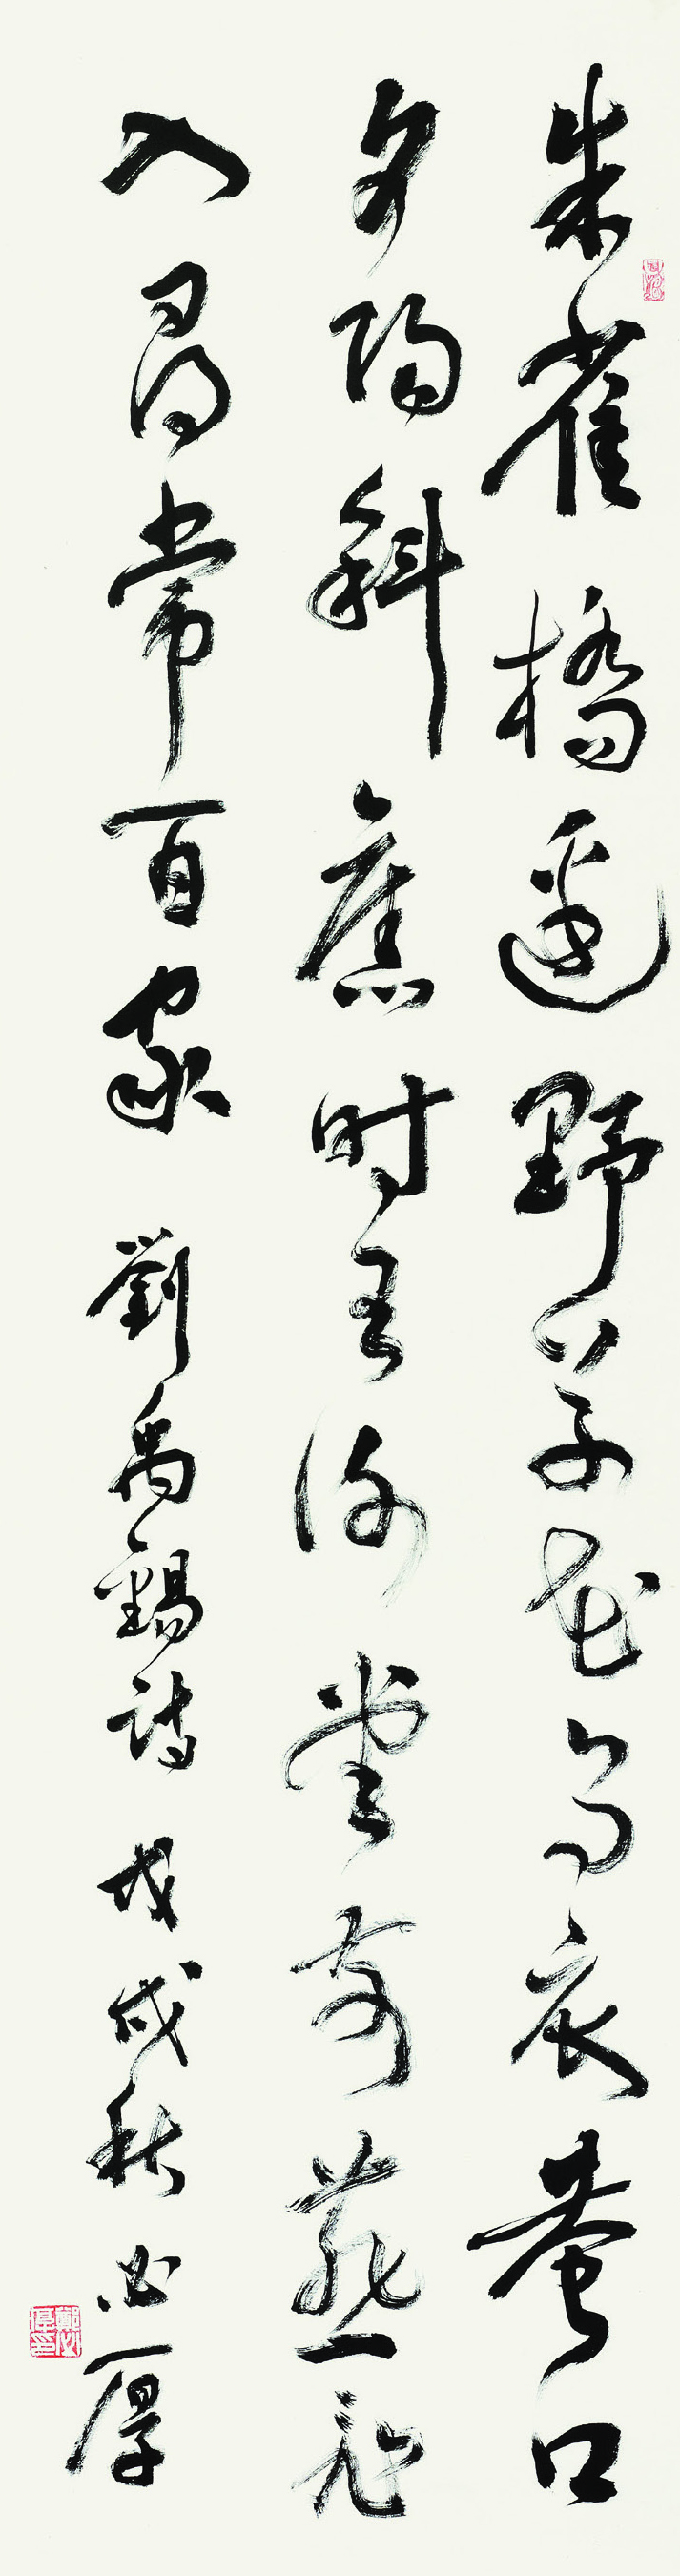 朱雀橋邊野草花烏衣巷口
夕陽斜舊時王謝堂前燕飛
入尋常百家 劉禹錫詩 戊戌秋 必厚
鄭必厚印